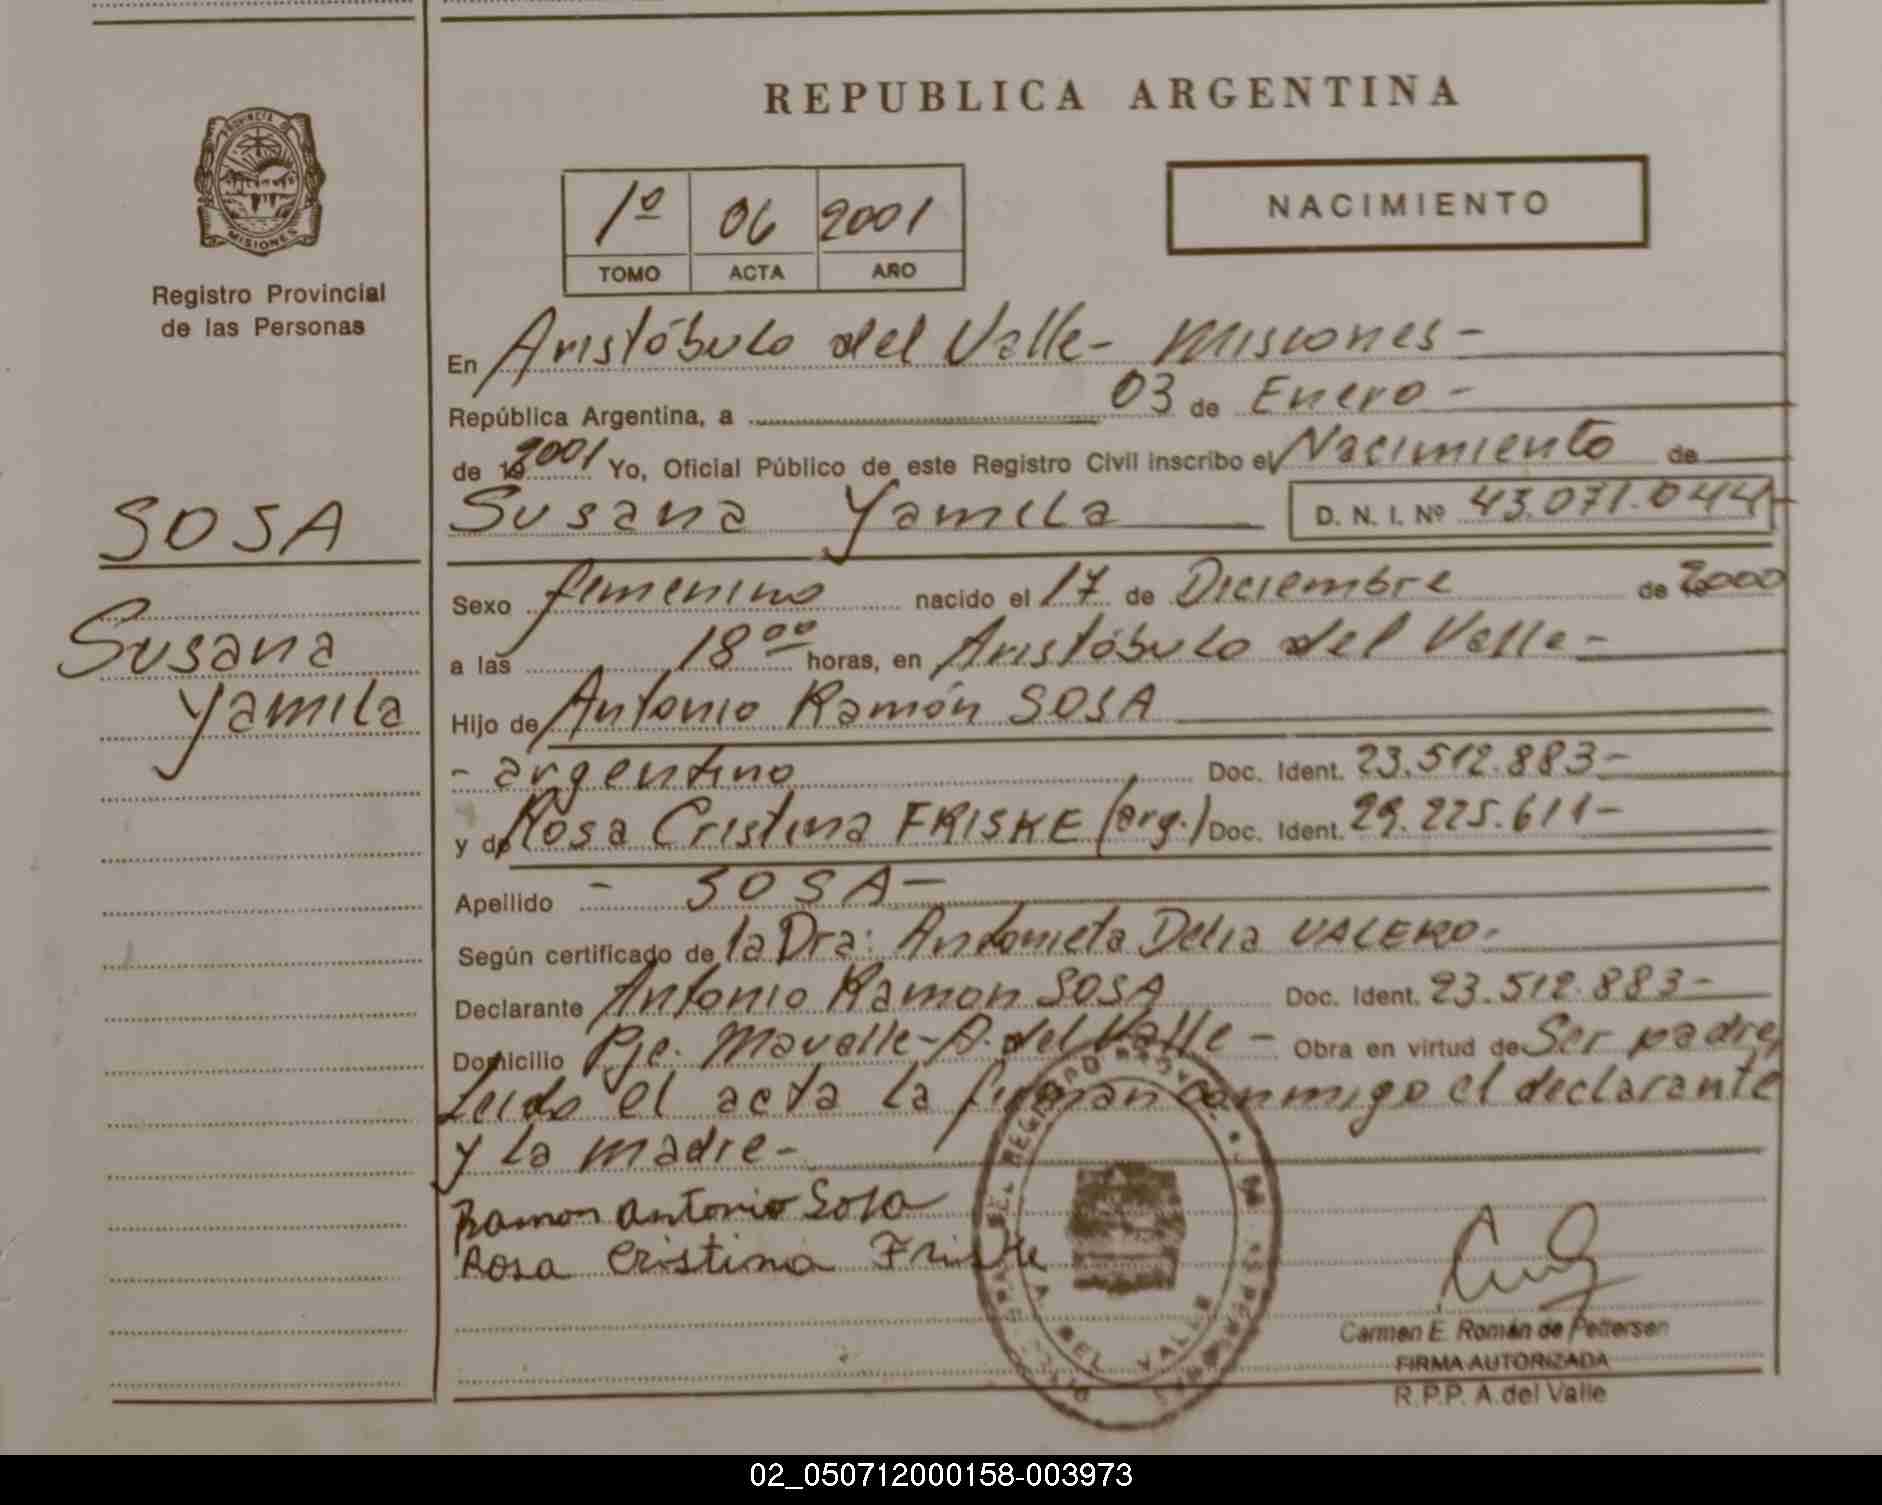 REPUBLICA ARGENTINA
PROVINCIA DE
MISIONES
Registro Provincial
de las Personas
1º 06 2001
TOMO ACTA AÑO
NACIMIENTO
En Aristóbulo del Valle - Misiones -
República Argentina, a 03 de Enero -
de 19 2001 Yo, Oficial Público de este Registro Civil inscribo el Nacimiento de
SOSA
Susana Yamila
Susana Yamila D. N. I. Nº 43.071.044
Sexo femenino nacido el 17 de Diciembre de 2000
a las 18 00 horas, en Aristóbulo del Valle -
Hijo de Antonio Ramón SOSA
- argentino Doc. Ident. 23.512.883 -
y de Rosa Cristina FRISKE (arg.) Doc. Ident. 29.225.611 -
Apellido - SOSA -
Según certificado de la Dra: Antonieta Delia VALERO.
Declarante Antonio Ramon SOSA Doc. Ident. 23.512.883 -
Domicilio Pje. Mavalle - A. del Valle - Obra en virtud de Ser padre,
Leido el acta la firman conmigo el declarante
y la madre -
Ramon antonio Sosa
Rosa Cristina Friske
DEL VALLE
Carmen E. Román de Pettersen
FIRMA AUTORIZADA
R.P.P. A. del Valle
02_050712000158-003973